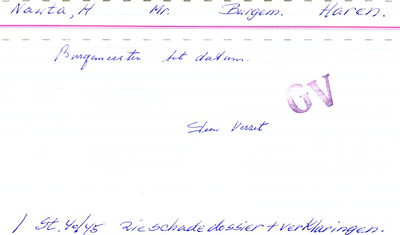 Nauta, H Mr. Burgem. Haren.
Burgemeester tot datum.
GV
Steun Verzet
/ St. 40/45 zie schadedossier + verklaringen.